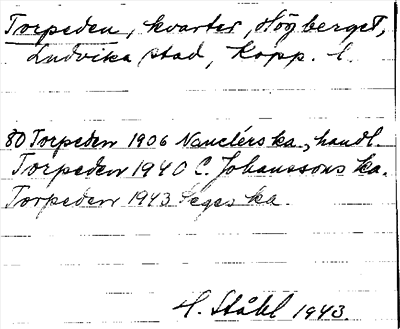 Torpeden, kvarter, Högberget,
Ludvika stad, Kopp. l.
80 Torpeden 1906 Nauclérs ka, handl.
Torpeden 1940 C. Johanssons ka.
Torpeden 1943 Seges ka.
H. Ståhl 1943.